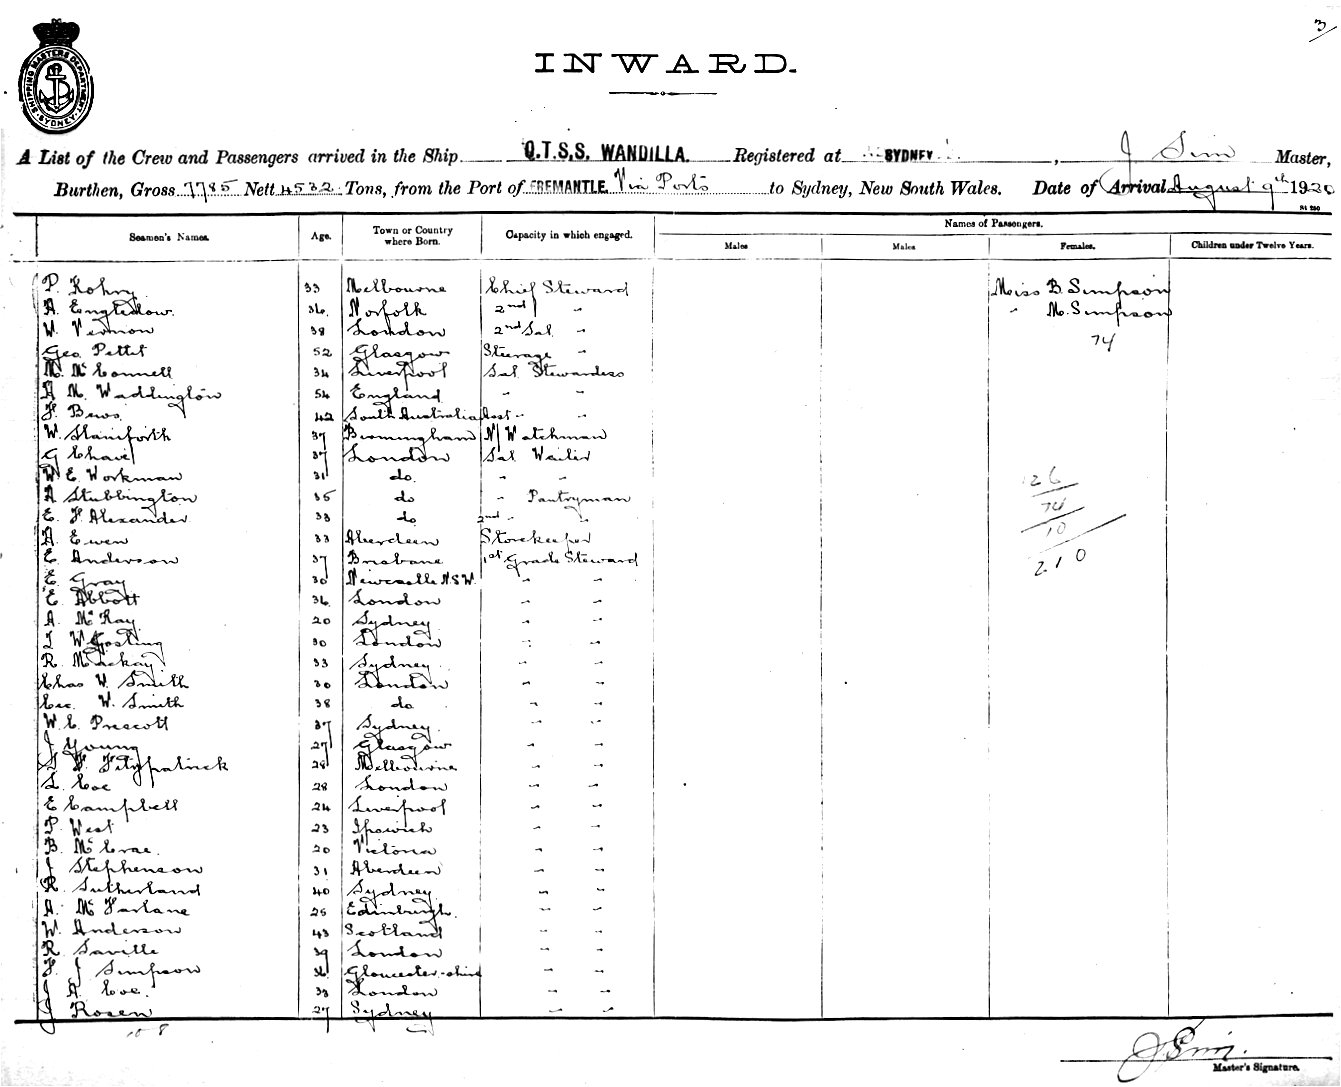 3
SHIPPING MASTERS DEPARTMENT SYDNEY
INWARD.
A List of the Crew and Passengers arrived in the Ship Q.T.S.S. WANDILLA. Registered at SYDNEY, J Sim Master,
Burthen, Gross 7785 Nett 4532 Tons, from the Port of FREMANTLE. Via Ports to Sydney, New South Wales. Date of Arrival August 9th 1920
Seamen's Names. Age. Town or Country where Born. Capacity in which engaged. Names of Passengers.
Males Males Females. Children under Twelve Years.
P. Kohn 33 Melbourne Chief Steward Miss B. Simpson
A Engledow 36 Norfolk 2nd " " M. Simpson
W. Vernon 38 London 2nd Sal "
74
Geo. Pettit 52 Glasgow Steerage "
M. McConnell 34 Liverpool Sal Stewardess
A M. Waddington 54 England " "
F Bews 42 South Australia Asst " "
W. Staniforth 37 Birmingham N/ Watchman
G Chave 37 London Sal Waiter
W E. Workman 31 do. " "
A Stubbington 35 do " Pantryman
E. F Alexander 33 do 2nd " "
A. Ewen 33 Aberdeen Storekeeper
E. Anderson 37 Brisbane 1st Grade Steward
E. Gray 30 Newcastle N.S.W. " "
E. Abbott 36 London " "
A. McKay 20 Sydney " "
W Gosling 30 London " "
R. Mackay 33 Sydney " "
Chas W. Smith 30 London " "
W. Smith 38 do " "
W. C. Prescott 37 Sydney " "
J Young 27 Glasgow " "
F. Fitzpatrick 28 Melbourne " "
L. Coe 28 London " "
E Campbell 24 Liverpool " "
P. West 23 Ipswich " "
B. McCrae. 20 Victoria " "
J Stephenson 31 Aberdeen " "
R. Sutherland 40 Sydney " "
A. McFarlane 25 Edinburgh. " "
W. Anderson 43 Scotland " "
R. Saville 39 London " "
F. J Simpson 36 Gloucester-shire " "
J A Coe. 33 London " "
J Rosen 27 Sydney " "
126
74
10
210
J Sim.
Master's Signature.